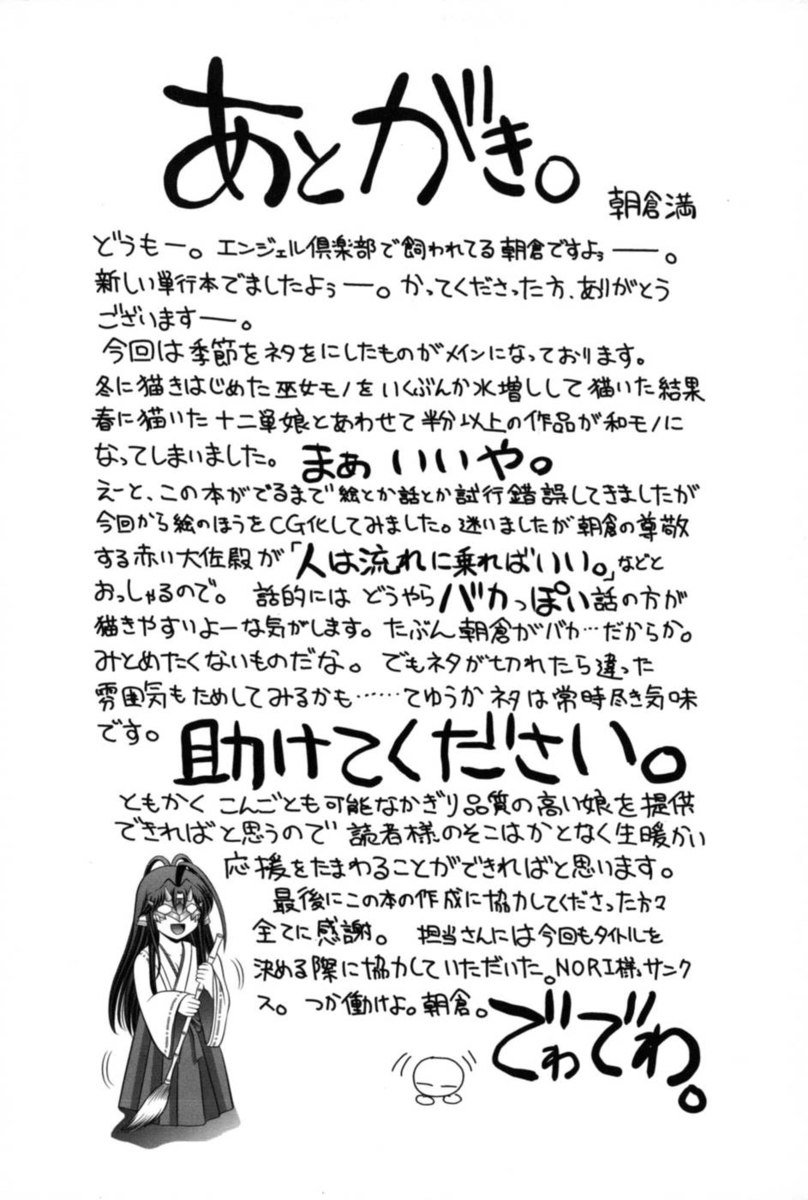 あとがき。
朝倉満
どうもー。エンジェル倶楽部で飼われてる朝倉ですよぅ――。
新しい単行本でましたよぅー。かってくださった方、ありがとう
ございますー。
今回は季節をネタをにしたものがメインになっております。
冬に猫きはじめた巫女モノをいくぶんか水増しして猫いた結果
春に猫いた十二単娘とあわせて半分以上の作品が和モノに
なってしまいました。まぁいいや。
えーと、この本がでるまで絵とか話とか試行錯誤してきましたが
今回から絵のほうをCG化してみました。迷いましたが朝倉の尊敬
する赤い大佐殿が「人は流れに乗ればいい。」などと
おっしゃるので。話的にはどうやらバカっぽい話の方が
猫きやすいよーな気がします。たぶん朝倉がバカ…だからか。
みとめたくないものだな。でもネタが切れたら違った
雰囲気もためしてみるかも……てゆうかネタは常時尽き気味
です。助けてください。
ともかくこんごとも可能なかぎり品質の高い娘を提供
できればと思うので読者様のそこはかとなく生暖かい
応援をたまわることができればと思います。
最後にこの本の作成に協力してくださった方々
全てに感謝。担当さんには今回もタイトルを
決める際に協力していただいた。NORI様サンク
ス。つか働けよ。朝倉。
でわでわ。